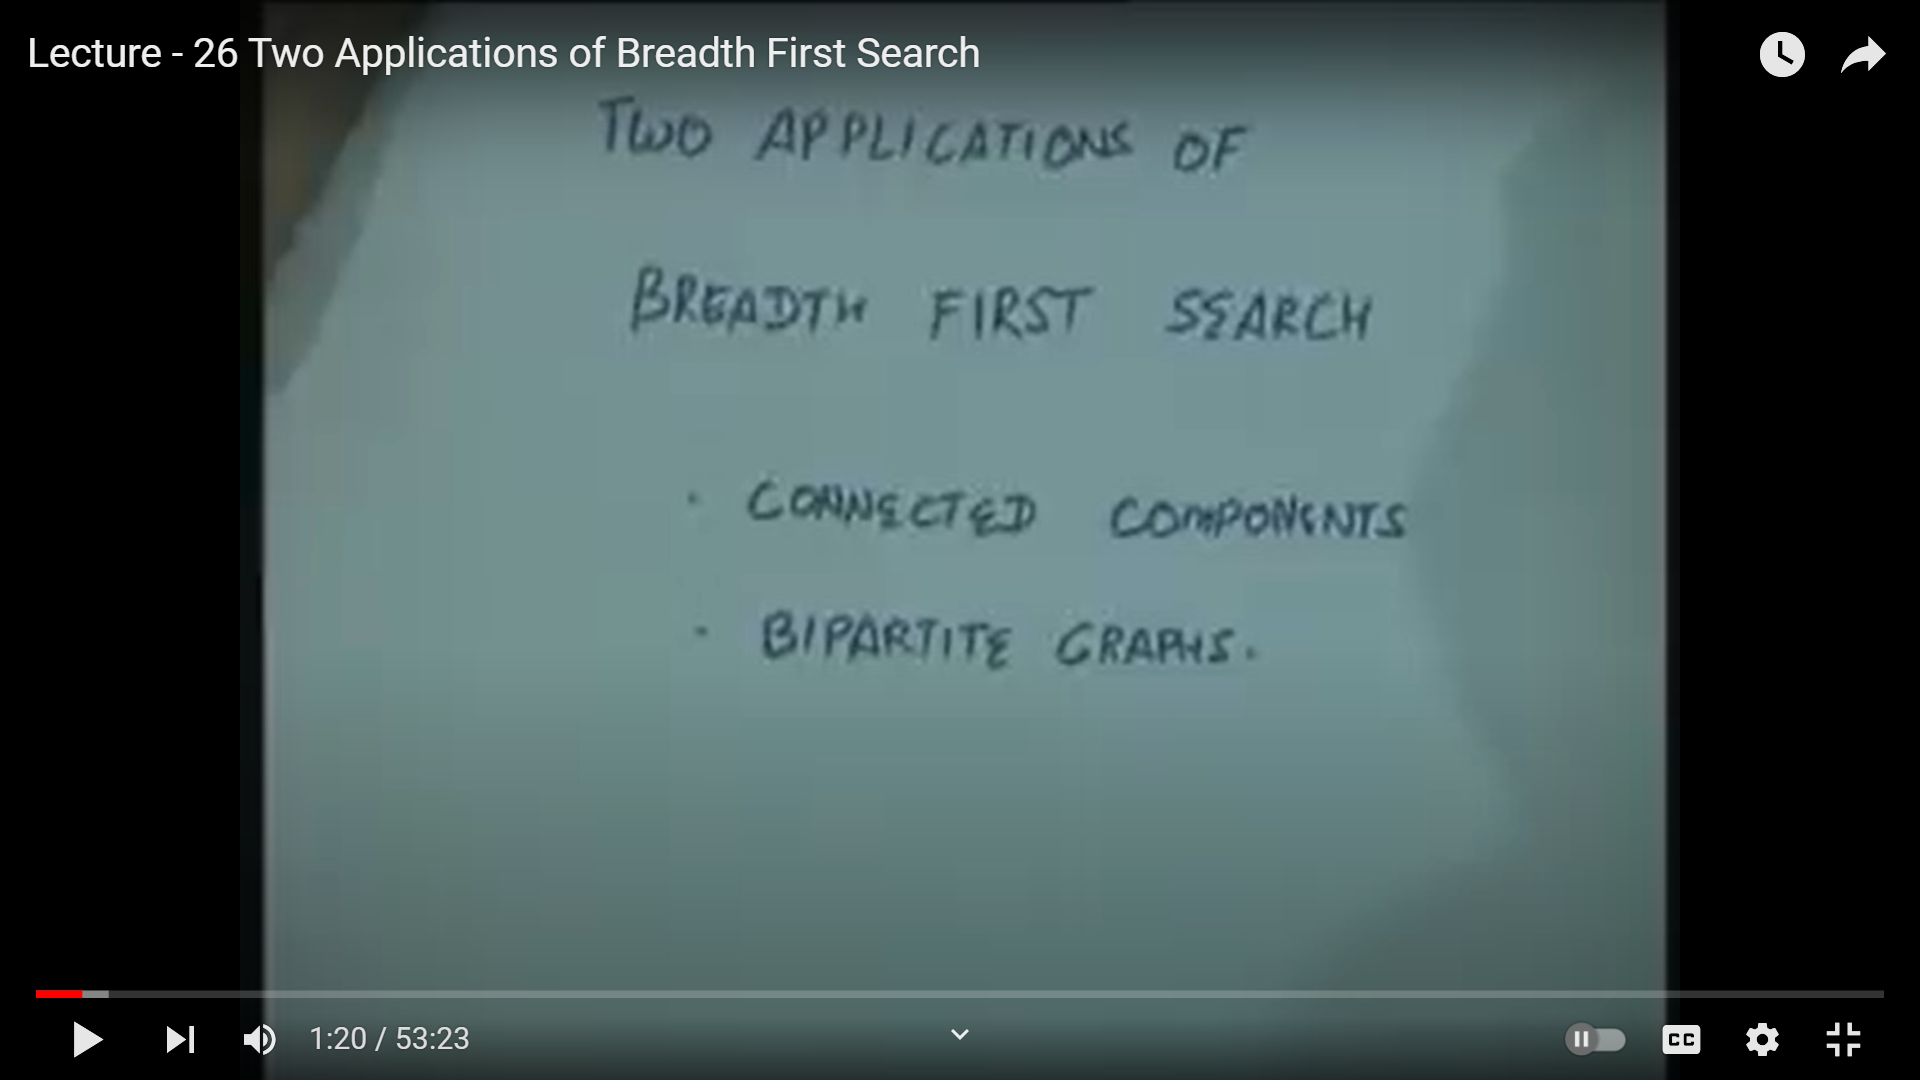 Lecture - 26 Two Applications of Breadth First Search
TWO APPLICATIONS OF
BREADTH FIRST SEARCH
· CONNECTED COMPONENTS
· BIPARTITE GRAPHS.
1:20 / 53:23
CC